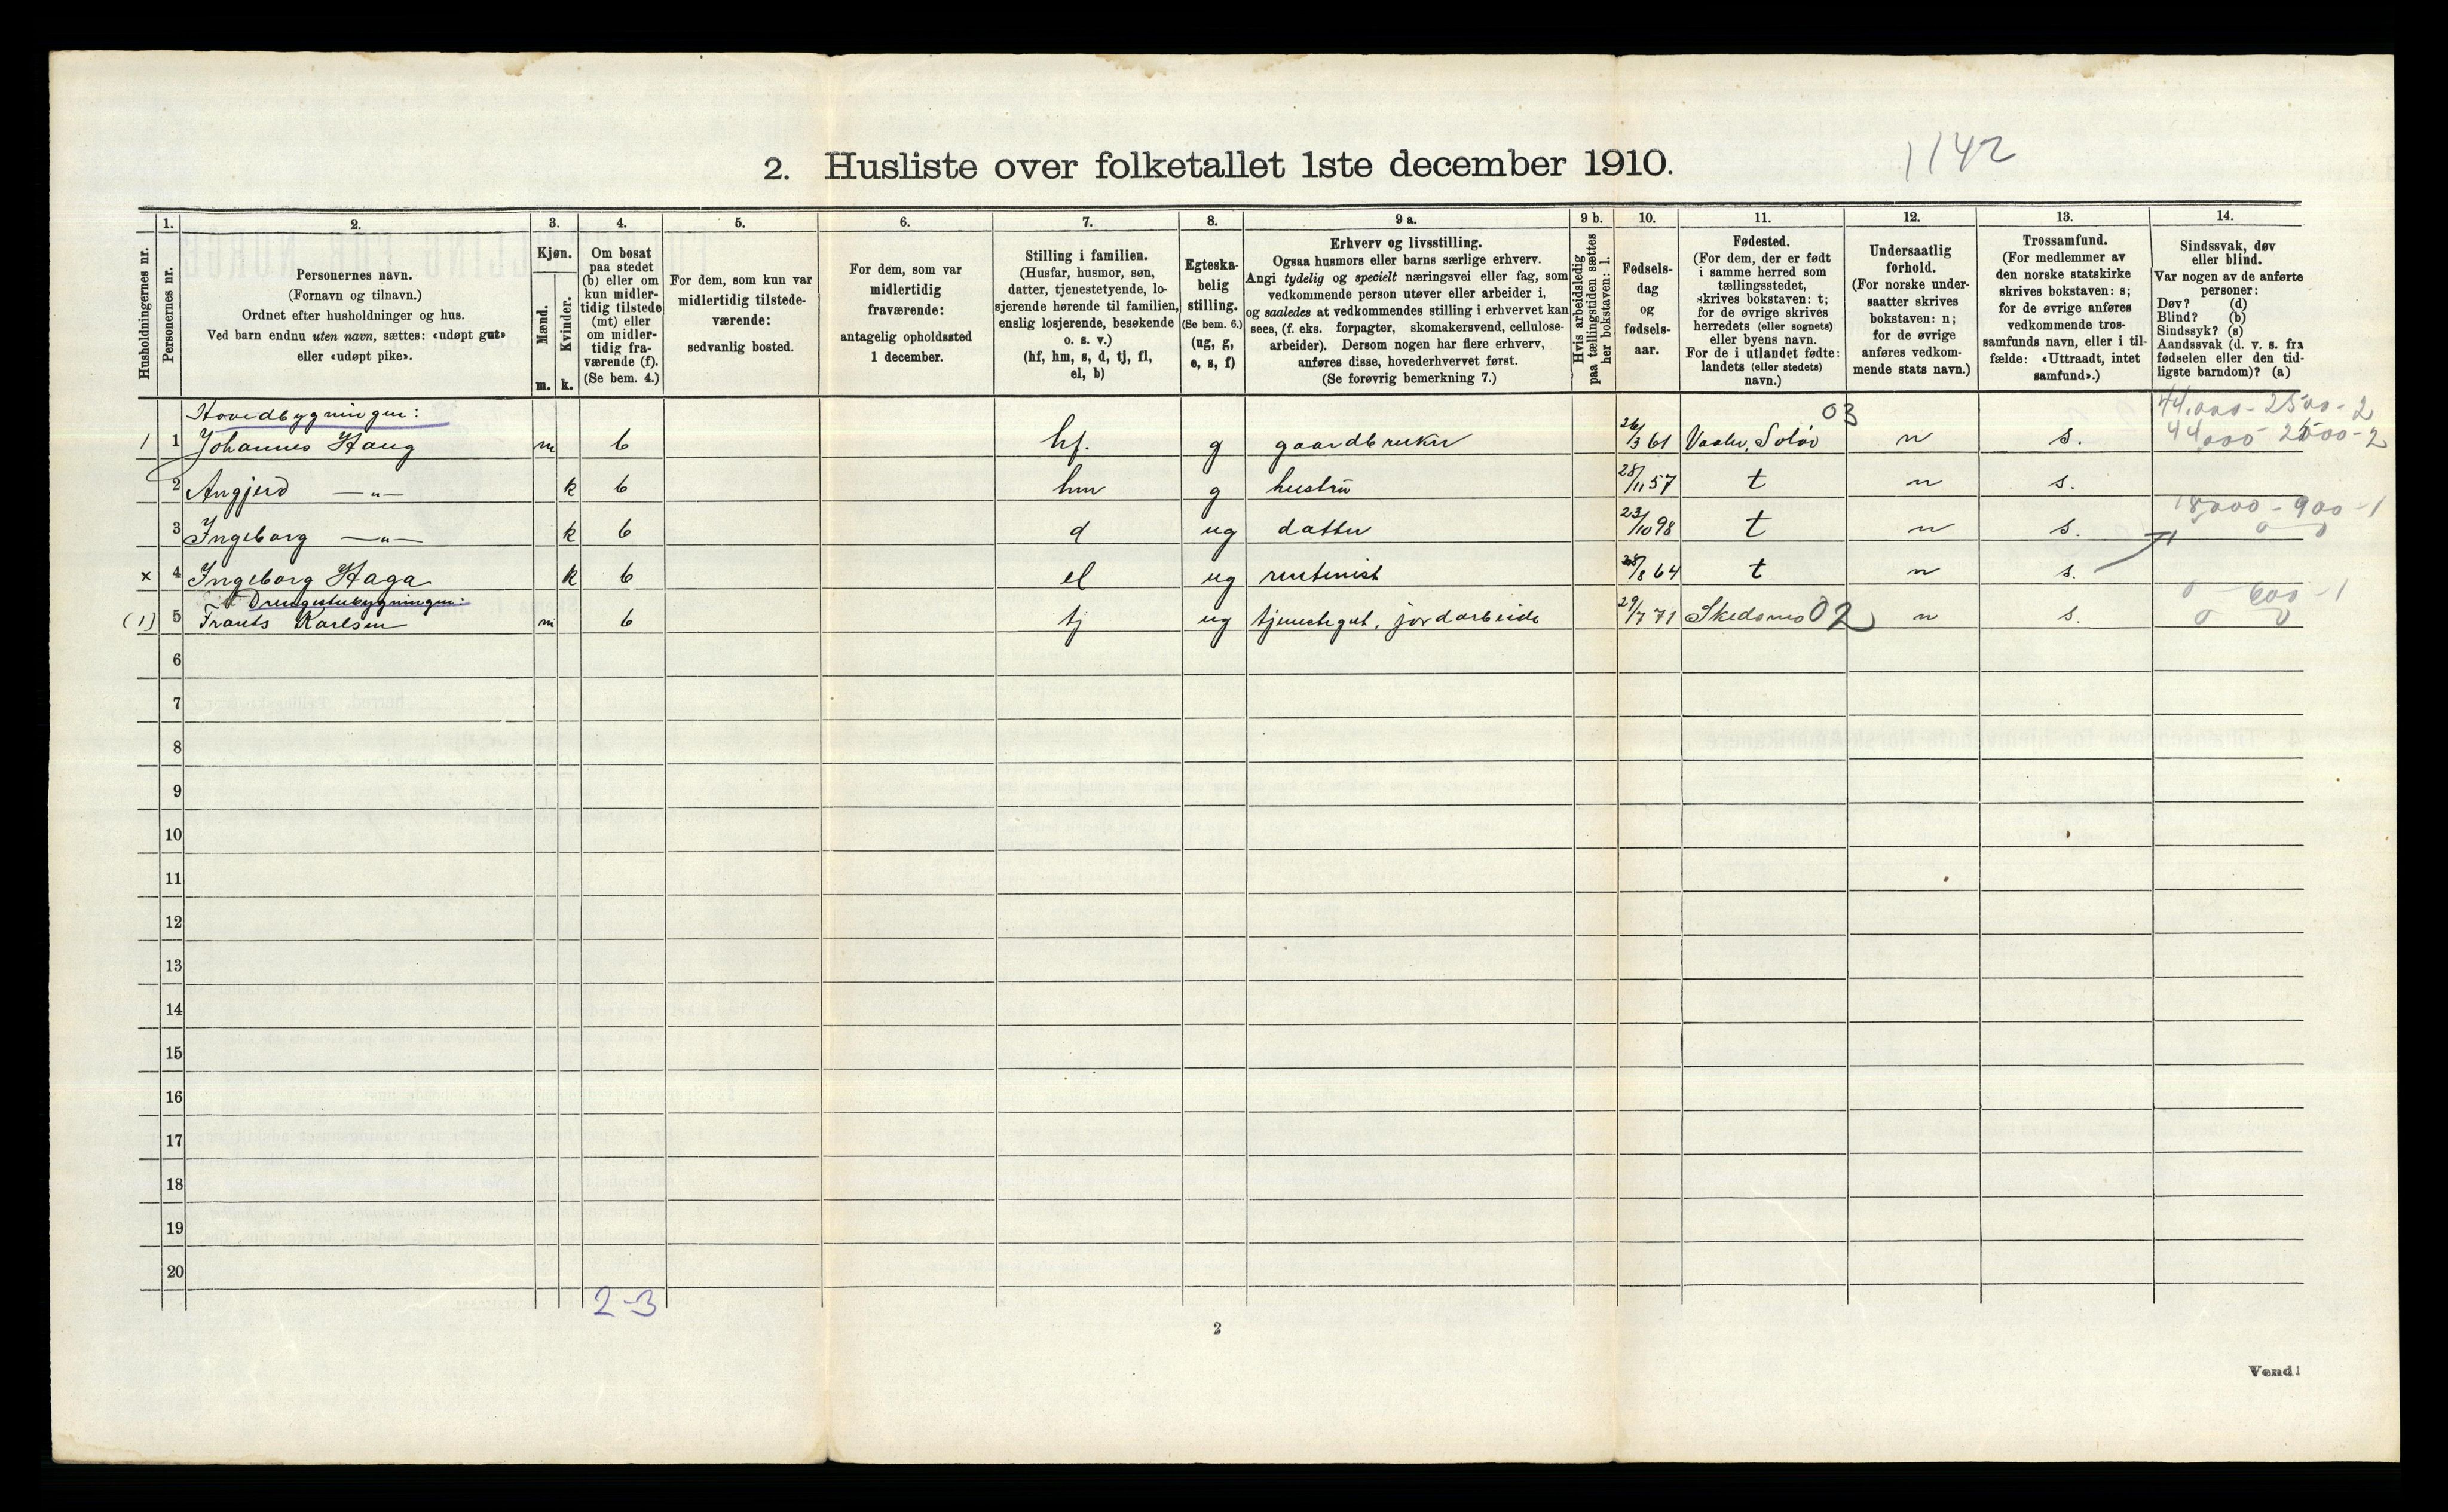 1142
2. Husliste over folketallet 1ste december 1910.
Husholdningernes nr.
1. Personernes nr.
2. Personernes navn. (Fornavn og tilnavn.) Ordnet efter husholdninger og hus. Ved barn endnu uten navn, sættes: «udøpt gut» eller «udøpt pike».
3. Kjøn. Mænd. m. Kvinder. k.
4. Om bosat paa stedet (b) eller om kun midlertidig tilstede (mt) eller om midlertidig fraværende (f). (Se bem. 4.)
5. For dem, som kun var midlertidig tilstedeværende: sedvanlig bosted.
6. For dem, som var midlertidig fraværende: antagelig opholdssted 1 december.
7. Stilling i familien. (Husfar, husmor, søn, datter, tjenestetyende, losjerende hørende til familien, enslig losjerende, besøkende o. s. v.) (hf, hm, s, d, tj, fl, el, b)
8. Egteskabelig stilling. (Se bem. 6.) (ug, g, e, s, f)
9 a. Erhverv og livsstilling. Ogsaa husmors eller barns særlige erhverv. Angi tydelig og specielt næringsvei eller fag, som vedkommende person utøver eller arbeider i, og saaledes at vedkommendes stilling i erhvervet kan sees, (f. eks. forpagter, skomakersvend, cellulosearbeider). Dersom nogen har flere erhverv, anføres disse, hovederhvervet først. (Se forøvrig bemerkning 7.)
9 b. Hvis arbeidsledig paa tællingstiden sættes her bokstaven: l.
10. Fødselsdag og fødselsaar.
11. Fødested. (For dem, der er født i samme herred som tællingsstedet, skrives bokstaven: t; for de øvrige skrives herredets (eller sognets) eller byens navn. For de i utlandet fødte: landets (eller stedets) navn.)
12. Undersaatlig forhold. (For norske undersaatter skrives bokstaven: n; for de øvrige anføres vedkommende stats navn.)
13. Trossamfund. (For medlemmer av den norske statskirke skrives bokstaven: s; for de øvrige anføres vedkommende trossamfunds navn, eller i tilfælde: «Uttraadt, intet samfund».)
14. Sindssvak, døv eller blind. Var nogen av de anførte personer: Døv? (d) Blind? (b) Sindssyk? (s) Aandssvak (d. v. s. fra fødselen eller den tidligste barndom)? (a)
Hovedbygningen: 03 44.000 - 2500 - 2
1 1 Johannes Haug m b hf. g gaardbruker 26/3 61 Vaaler, Solør n s. 44000 2500 - 2
2 Angjerd —"— k b hm g hustru 28/11 57 t n s.
18000 - 900 - 1
3 Ingeborg —"— k b d ug datter 23/10 98 t n s. 0 0
x 4 Ingeborg Haga k b el ug rentenist /8 64 t n s.
Drengestubygningen: 0 600 - 1
(1) 5 Frants Karlsen m b tj ug tjenestegut, jordarbeide 29/7 71 Skedsmo 02 n s. 0 0
6
7
8
9
10
11
12
13
14
15
16
17
18
19
20
2-3
2
Vend!